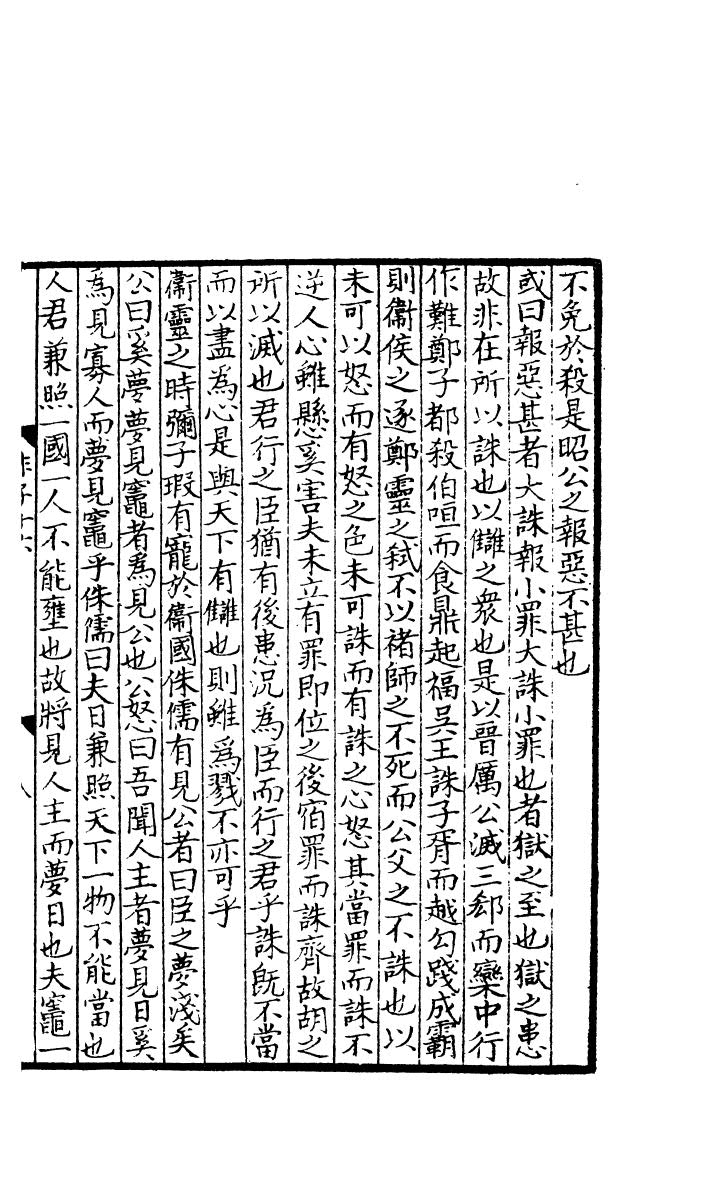 不免於殺是昭公之報惡不甚也
或曰報惡甚者大誅報小罪大誅小罪也者獄之至也獄之患
故非在所以誅也以讎之衆也是以晉厲公滅三郄而欒中行
作難鄭子都殺伯咺而食鼎起福吳王誅子胥而越勾踐成霸
則衞侯之逐鄭靈之弒不以褚師之不死而公父之不誅也以
未可以怒而有怒之色未可誅而有誅之心怒其當罪而誅不
逆人心雖懸奚害夫未立有罪即位之後宿罪而誅齊故胡之
所以滅也君行之臣猶有後患况為臣而行之君乎誅旣不當
而以盡為心是與天下有讎也則雖為戮不亦可乎
衞靈之時彌子瑕有寵於衞國侏儒有見公者曰臣之夢淺矣
公曰奚夢夢見竈者為見公也公怒曰吾聞人主者夢見日奚
為見寡人而夢見竈乎侏儒曰夫日兼照天下一物不能當也
人君兼照一國一人不能壅也故將見人主而夢日也夫竈一
子十六
八